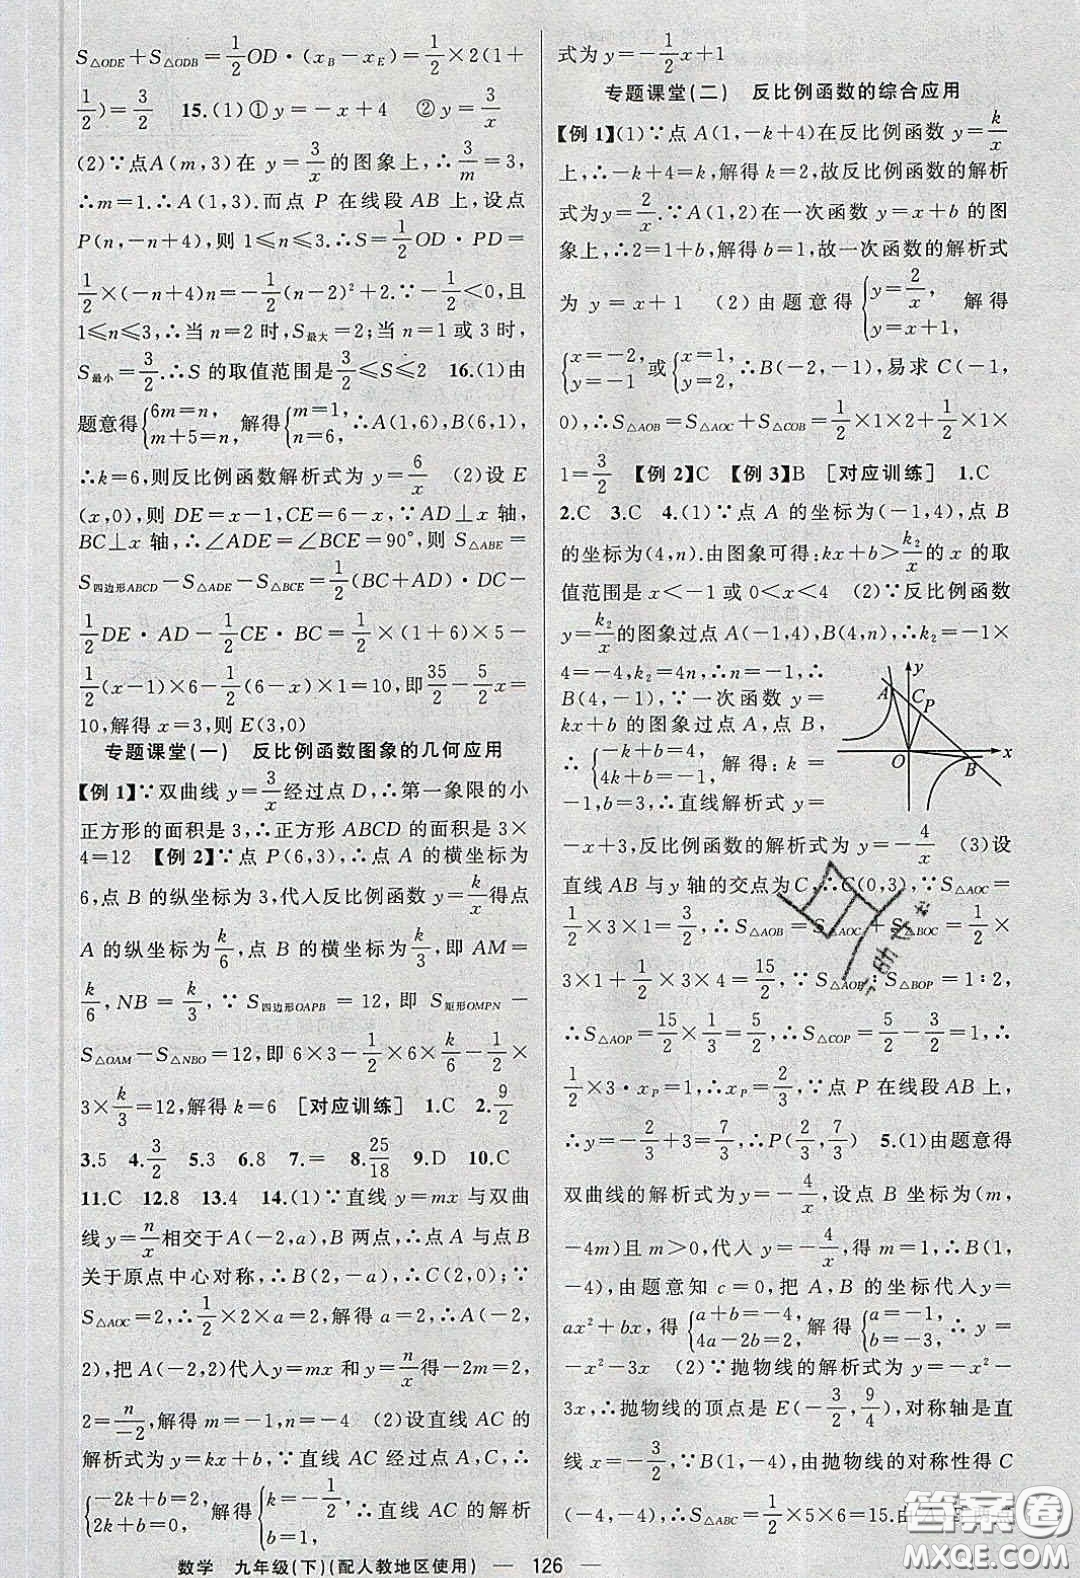 S△ODE+S△ODB=1/2OD·(x_B-x_E)=1/2×2(1+
1/2)=3/2　15.(1)①y=-x+4　②y=3/x
(2)∵点A(m,3)在 y=3/x 的图象上,∴3/m=3,
∴m=1.∴A(1,3).而点 P 在线段 AB 上,设点
P(n,-n+4),则 1≤n≤3.∴S=1/2OD·PD=
1/2×(-n+4)n=-1/2(n-2)²+2.∵-1/2<0,且
1≤n≤3,∴当 n=2 时,S最大=2;当 n=1 或 3 时,
S最小=3/2.∴S 的取值范围是3/2≤S≤2　16.(1)由
题意得{6m=n, m+5=n, 解得{m=1, n=6, ∴A(1,6),B(6,1),
∴k=6,则反比例函数解析式为 y=6/x　(2)设 E
(x,0),则 DE=x-1,CE=6-x,∵AD⊥x 轴,
BC⊥x 轴,∴∠ADE=∠BCE=90°,则 S△ABE=
S四边形ABCD-S△ADE-S△BCE=1/2(BC+AD)·DC-
1/2DE·AD-1/2CE·BC=1/2×(1+6)×5-
1/2(x-1)×6-1/2(6-x)×1=10,即35/2-5/2x=
10,解得 x=3,则 E(3,0)
专题课堂(一)　反比例函数图象的几何应用
【例1】∵双曲线 y=3/x经过点 D,∴第一象限的小
正方形的面积是 3,∴正方形 ABCD 的面积是 3×
4=12　【例2】∵点 P(6,3),∴点 A 的横坐标为
6,点 B 的纵坐标为 3,代人反比例函数 y=k/x得点
A 的纵坐标为k/6,点 B 的横坐标为k/3,即 AM=
k/6,NB=k/3,∵S四边形OAPB=12,即 S矩形OMPN-
S△OAM-S△NBO=12,即 6×3-1/2×6×k/6-1/2×
3×k/3=12,解得 k=6　[对应训练]　1.C　2.9/2
3.5　4.3/2　5.3　6.8　7.=　8.25/18　9.D　10.C
11.C　12.8　13.4　14.(1)∵直线 y=mx 与双曲
线 y=n/x相交于A(-2,a),B 两点,∴点 A 与点 B
关于原点中心对称,∴B(2,-a),∴C(2,0);∵
S△AOC=2,∴1/2×2×a=2,解得 a=2,∴A(-2,
2),把 A(-2,2)代入 y=mx 和 y=n/x得-2m=2,
2=n/-2,解得 m=-1,n=-4　(2)设直线 AC 的
解析式为 y=kx+b,∵直线 AC 经过点 A,C,∴
{-2k+b=2, 2k+b=0, 解得{k=-1/2, b=1, ∴直线 AC 的解析
式为 y=-1/2x+1
专题课堂(二)　反比例函数的综合应用
【例1】(1)∵点 A(1,-k+4)在反比例函数 y=k/x
上,∴-k+4=k,解得 k=2,故反比例函数的解析
式为 y=2/x.∵A(1,2)在一次函数 y=x+b 的图
象上,∴2=1+b,解得 b=1,故一次函数的解析式
为 y=x+1　(2)由题意得{y=2/x, y=x+1, 解得
{x=-2, y=-1 或{x=1, y=2, ∴B(-2,-1),易求 C(-1,
0),∴S△AOB=S△AOC+S△COB=1/2×1×2+1/2×1×
1=3/2　【例2】C　【例3】B　[对应训练]　1.C
2.C　3.C　4.(1)∵点 A 的坐标为(-1,4),点 B
的坐标为(4,n).由图象可得:kx+b>k₂/x的 x 的取
值范围是 x<-1 或 0<x<4　(2)∵反比例函数
y=k₂/x的图象过点 A(-1,4),B(4,n),∴k₂=-1×
4=-4,k₂=4n,∴n=-1,∴
B(4,-1),∵一次函数 y=
kx+b 的图象过点 A,点 B,
∴{-k+b=4, 4k+b=-1, 解得:k=
-1,b=3,∴直线解析式 y=
y
A
C
P
O
B
x
-x+3,反比例函数的解析式为 y=-4/x　(3)设
直线 AB 与 y 轴的交点为 C,∴C(0,3),∵S△AOC=
1/2×3×1=3/2,∴S△AOB=S△AOC+S△BOC=1/2×
3×1+1/2×3×4=15/2,∵S△AOP:S△BOP=1:2,
∴S△AOP=15/2×1/3=5/2,∴S△COP=5/2-3/2=1,∴
1/2×3·x_P=1,∴x_P=2/3,∵点 P 在线段 AB 上,
∴y=-2/3+3=7/3,∴P(2/3,7/3)　5.(1)由题意得
双曲线的解析式为 y=-4/x,设点 B 坐标为(m,
-4m)且 m>0,代入 y=-4/x,得 m=1,∴B(1,
-4),由题意知 c=0,把 A,B 的坐标代人 y=
ax²+bx,得{a+b=-4, 4a-2b=2, 解得{a=-1, b=-3, ∴y=
-x²-3x　(2)∵抛物线的解析式为 y=-x²-
3x,∴抛物线的顶点是 E(-3/2,9/4),对称轴是直
线 x=-3/2,∵B(1,-4),由抛物线的对称性得 C
(-4,-4),∴S△ABC=1/2×5×6=15.由
数学　九年级(下)(配人教地区使用)　— 126 —
答案圈
MXQE.COM